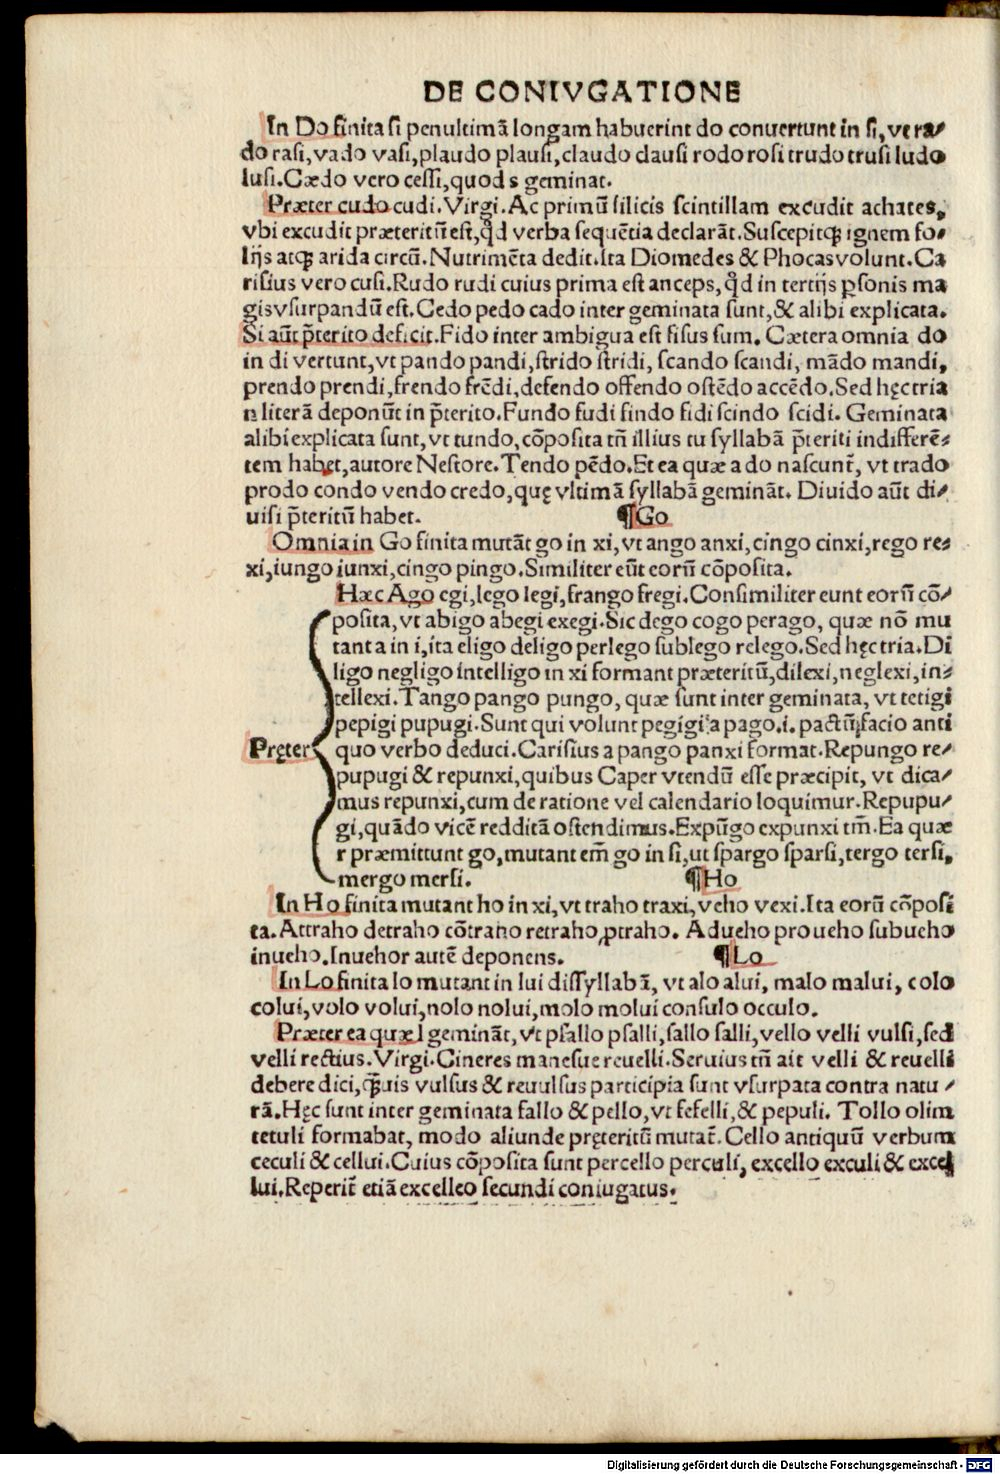 DE CONIVGATIONE
In Do finita si penultimā longam habuerint do conuertunt in si, vt ra/
do rasi, vado vasi, plaudo plausi, claudo clausi rodo rosi trudo trusi ludo
lusi. Cædo vero cessi, quod s geminat.
Præter cudo cudi. Virgi. Ac primū silicis scintillam excudit achates,
vbi excudit præteritū est, qd̛ verba sequētia declarāt. Suscepitqꝫ ignem fo/
lijs atqꝫ arida circū. Nutrimēta dedit. Ita Diomedes & Phocas volunt. Ca
risius vero cusi. Rudo rudi cuius prima est anceps, qd̛ in tertijs ꝑsonis ma
gis vsurpandū est. Cedo pedo cado inter geminata sunt, & alibi explicata.
Si aūt p̄terito deficit. Fido inter ambigua est fisus sum. Cætera omnia do
in di vertunt, vt pando pandi, strido stridi, scando scandi, mādo mandi,
prendo prendi, frendo frēdi, defendo offendo ostēdo accēdo. Sed hęc tria
n literā deponūt in p̄terito. Fundo fudi findo fidi scindo scidi. Geminata
alibi explicata sunt, vt tundo, cōposita tn̄ illius tu syllabā p̄teriti indifferē/
tem habet, autore Nestore. Tendo pēdo. Et ea quæ a do nascunt̄, vt trado
prodo condo vendo credo, quę vltimā syllabā gemināt. Diuido aūt di/
uisi p̄teritū habet. ¶Go
Omnia in Go finita mutāt go in xi, vt ango anxi, cingo cinxi, rego re/
xi, iungo iunxi, cingo pingo. Similiter eūt eorū cōposita.
Hæc Ago egi, lego legi, frango fregi. Consimiliter eunt eorū cō/
posita, vt abigo abegi exegi. Sic dego cogo perago, quæ nō mu
tant a in i, ita eligo deligo perlego sublego relego. Sed hęc tria. Di
ligo negligo intelligo in xi formant præteritū, dilexi, neglexi, in/
tellexi. Tango pango pungo, quæ sunt inter geminata, vt tetigi
pepigi pupugi. Sunt qui volunt pegigi a pago .i. pactū facio anti
Pręter quo verbo deduci. Carisius a pango panxi format. Repungo re/
pupugi & repunxi, quibus Caper vtendū esse præcipit, vt dica/
mus repunxi, cum de ratione vel calendario loquimur. Repupu/
gi, quādo vicē redditā ostendimus. Expūgo expunxi tm̄. Ea quæ
r præmittunt go, mutant em̄ go in si, ut spargo sparsi, tergo tersi,
mergo mersi. ¶Ho
In Ho finita mutant ho in xi, vt traho traxi, veho vexi. Ita eorū cōposi
ta. Attraho detraho cōtraho retraho, ꝓtraho. Adueho proueho subueho
inueho. Inuehor autē deponens. ¶Lo
In Lo finita lo mutant in lui dissyllabā, vt alo alui, malo malui, colo
colui, volo volui, nolo nolui, molo molui consulo occulo.
Præter ea quæ l gemināt, vt psallo psalli, sallo salli, vello velli vulsi, sed
velli rectius. Virgi. Cineres manesue reuelli. Seruius tn̄ ait velli & reuelli
debere dici, qꝫuis vulsus & reuulsus participia sunt vsurpata contra natu /
rā. Hęc sunt inter geminata fallo & pello, vt fefelli, & pepuli. Tollo olim
tetuli formabat, modo aliunde pręteritū mutat̄. Cello antiquū verbum
ceculi & cellui. Cuius cōposita sunt percello perculi, excello exculi & excel
lui. Reperit̄ etiā excelleo secundi coniugatus.
Digitalisierung gefördert durch die Deutsche Forschungsgemeinschaft - DFG